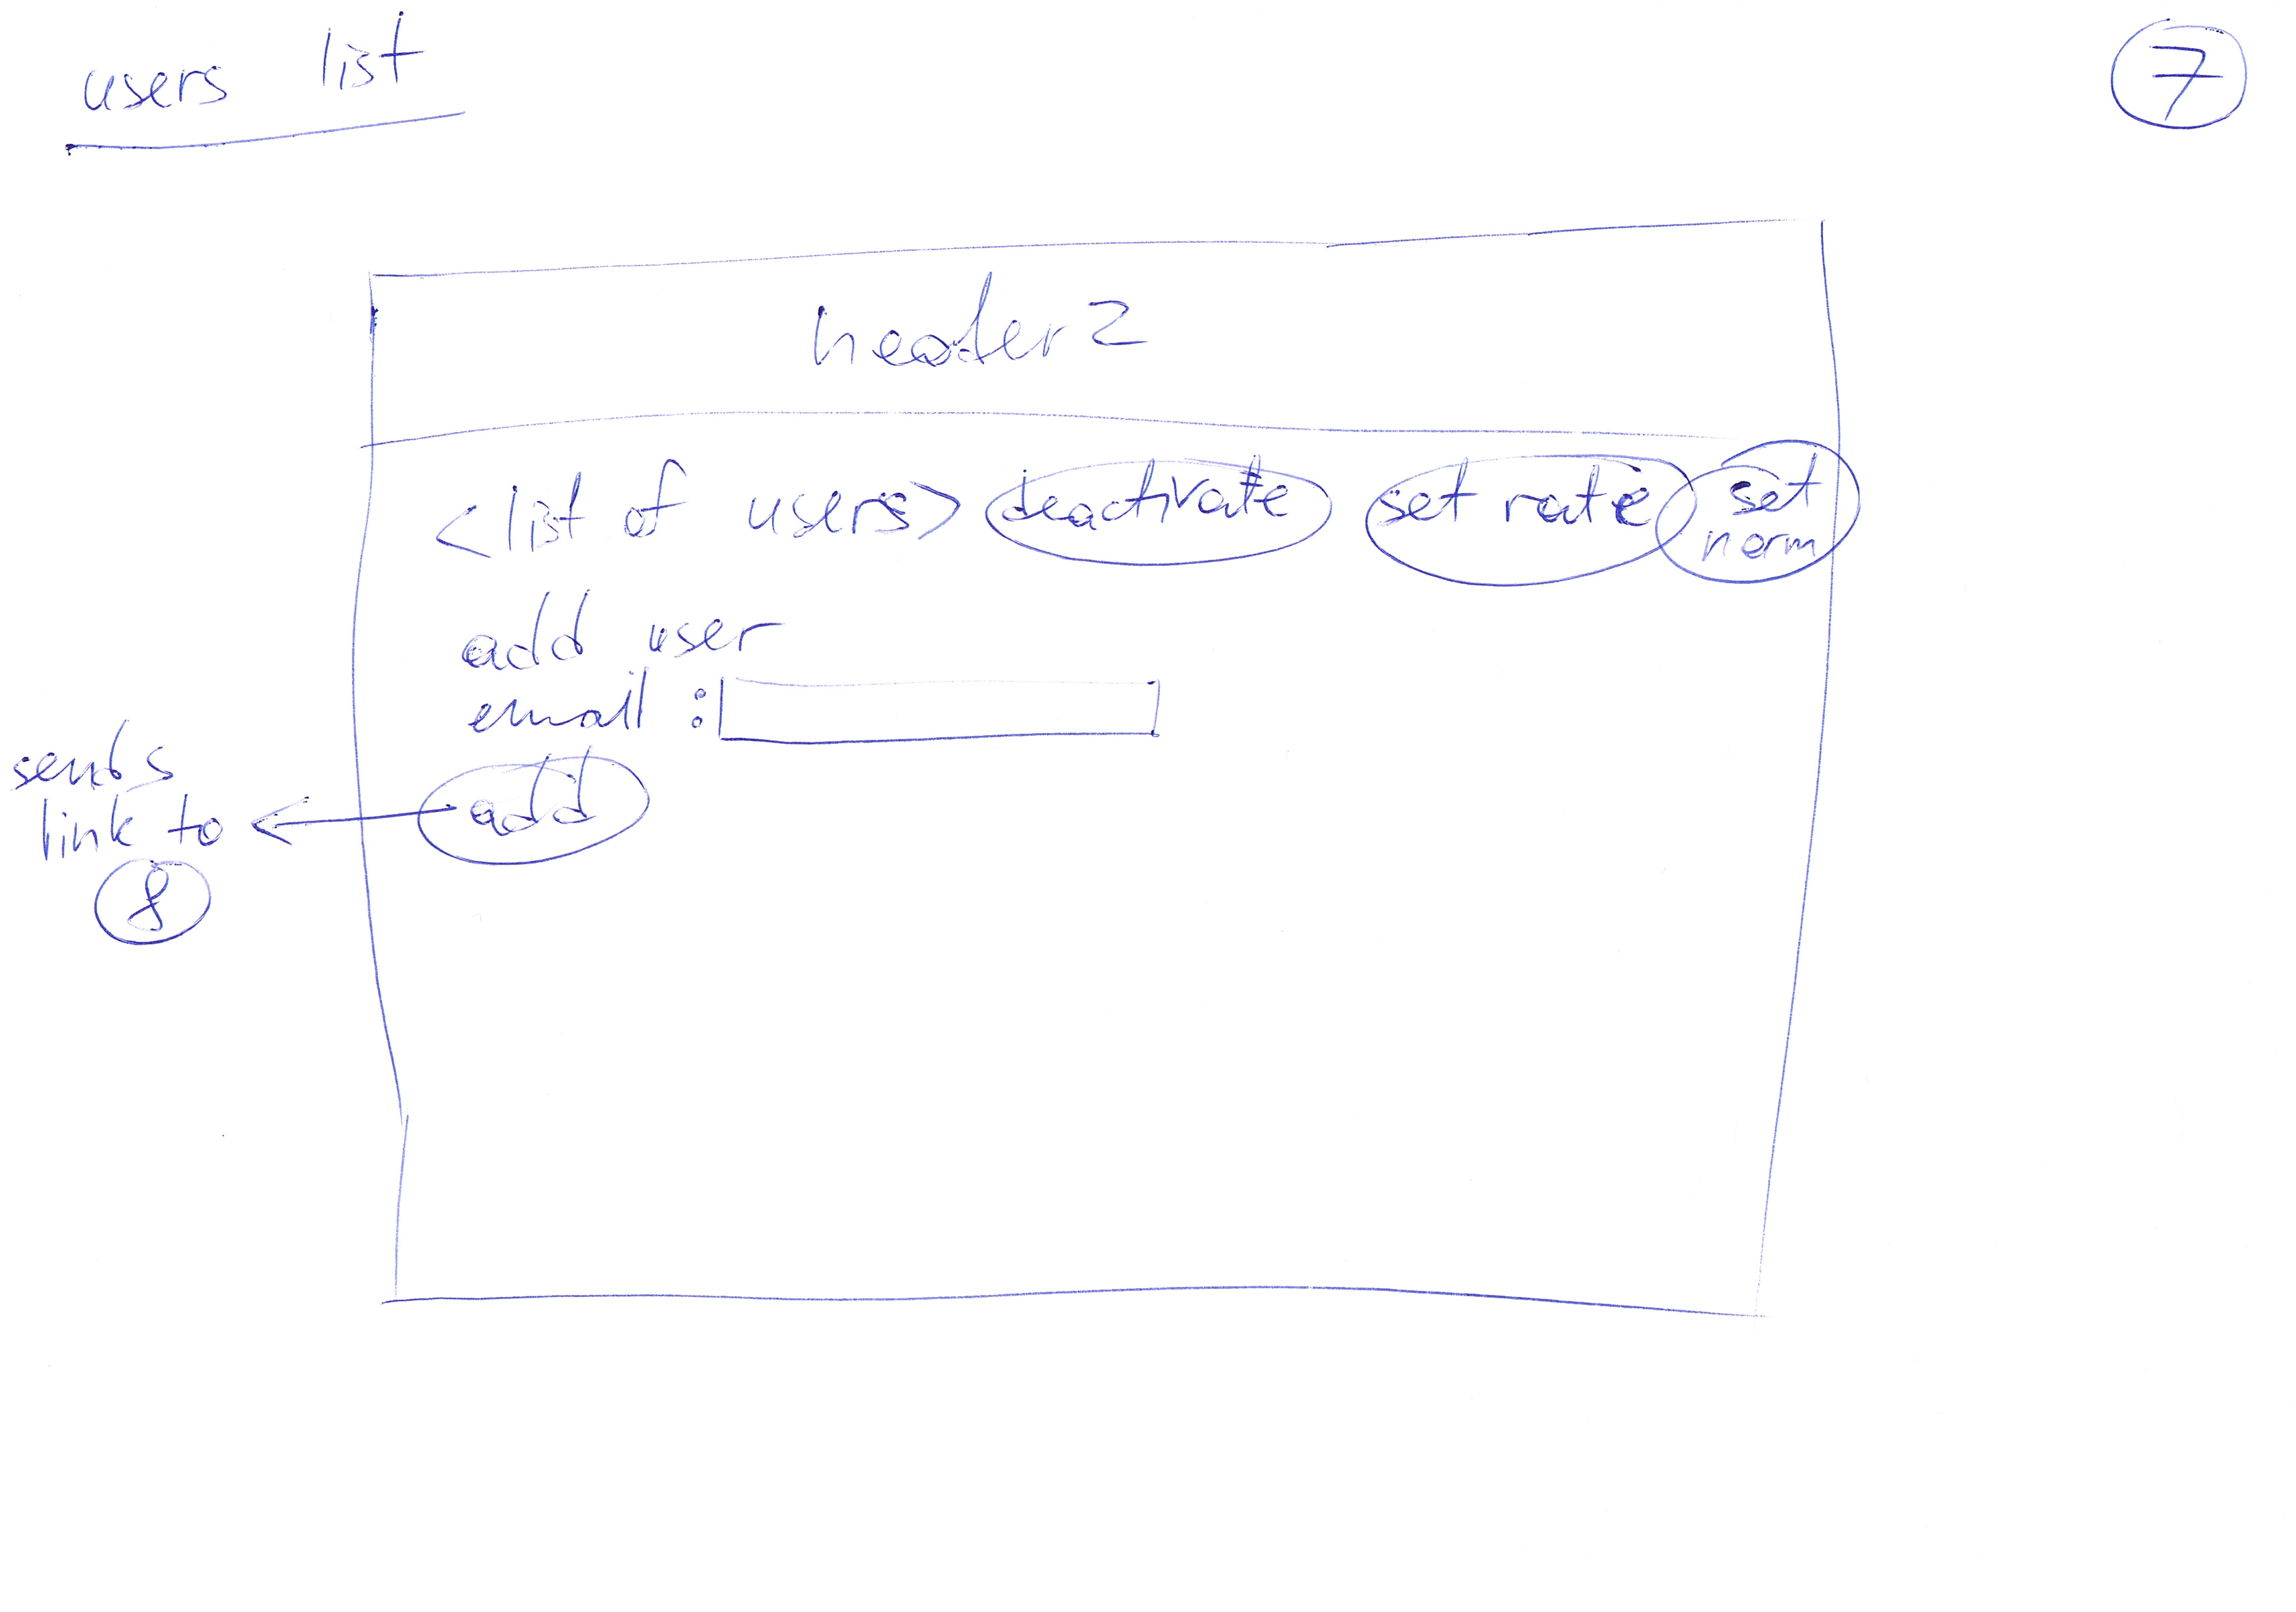 users list
7
header 2
<list of users> deactivate set rate set
norm
add user
email :
add
sends
link to
8